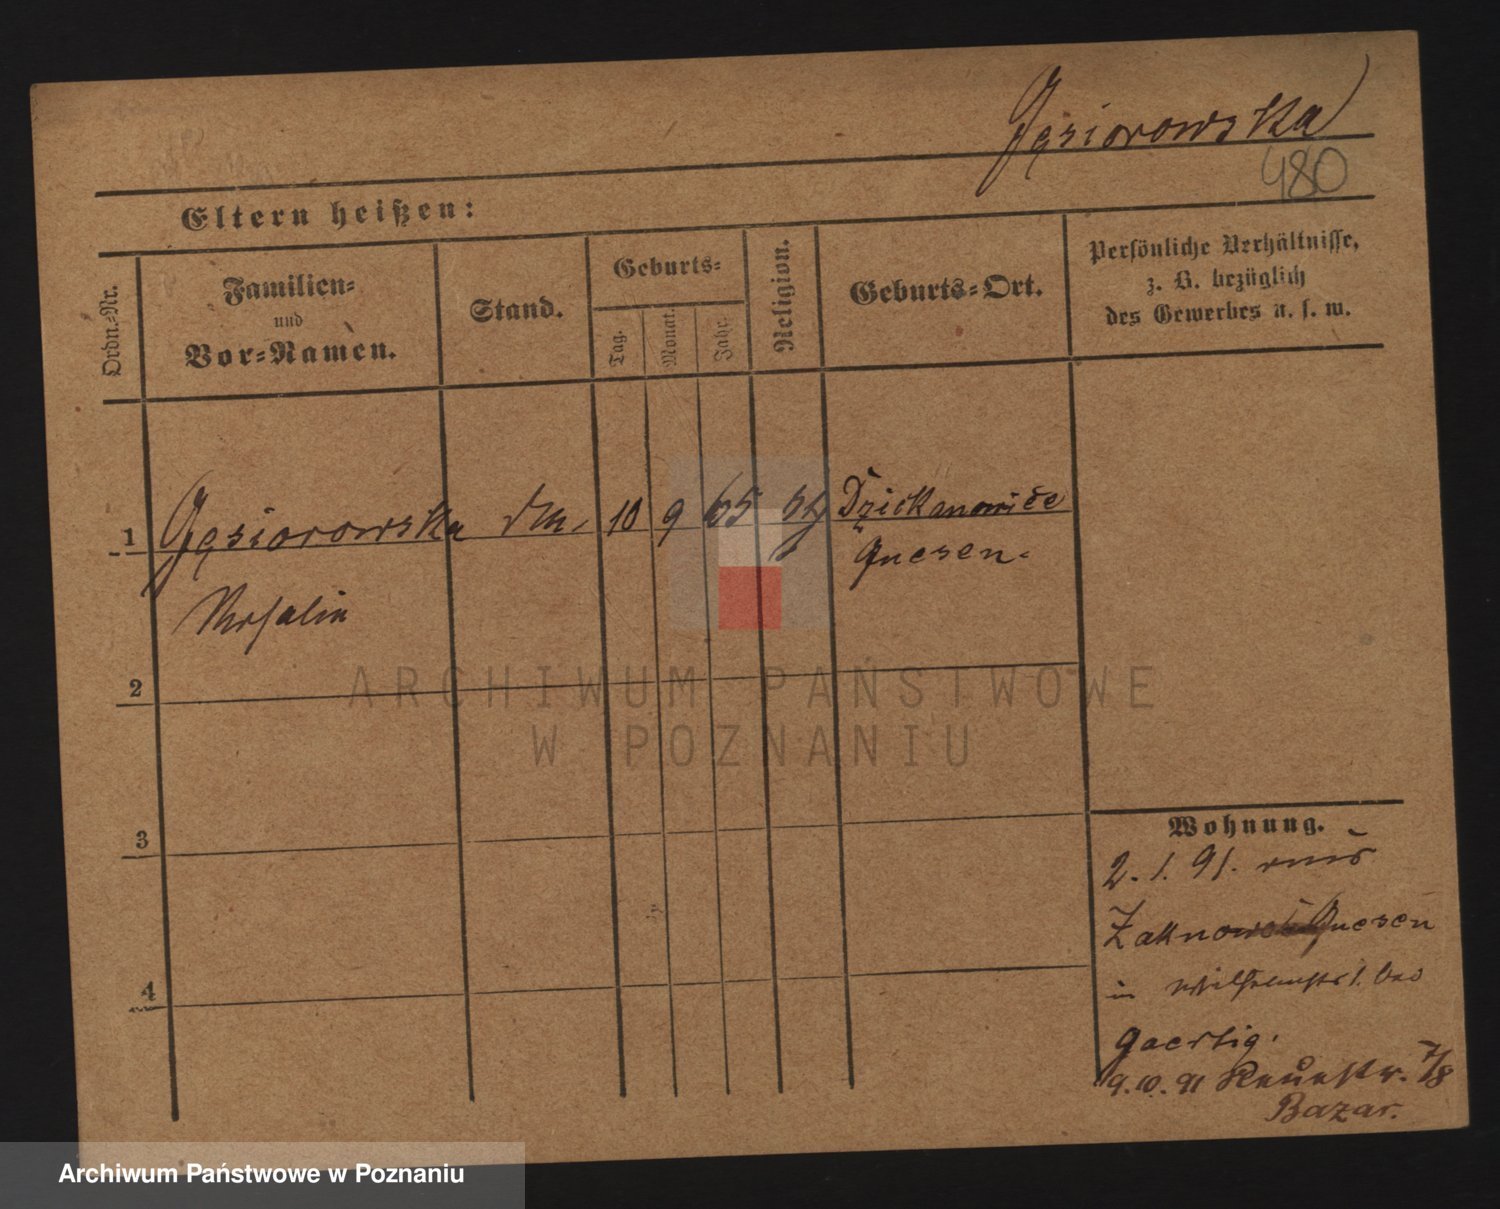 Gąsiorowska
480
Eltern heißen:
Ordn.-Nr.
Familien-
und
Vor-Namen.
Stand.
Geburts-
Tag.
Monat.
Jahr.
Religion.
Geburts-Ort.
Persönliche Verhältnisse,
z. B. bezüglich
des Gewerbes u. s. w.
1 Gąsiorowska 10 9 65 Dziekanowice
Gnesen.
Rosalie
2
3
4
Wohnung.
2. 1. 91. aus
Gnesen
in Wilhelmstr 1. bei
Gaertig.
9.10.91 Neuestr. 7/8
Bazar.
ARCHIWUM PAŃSTWOWE
W POZNANIU
Archiwum Państwowe w Poznaniu